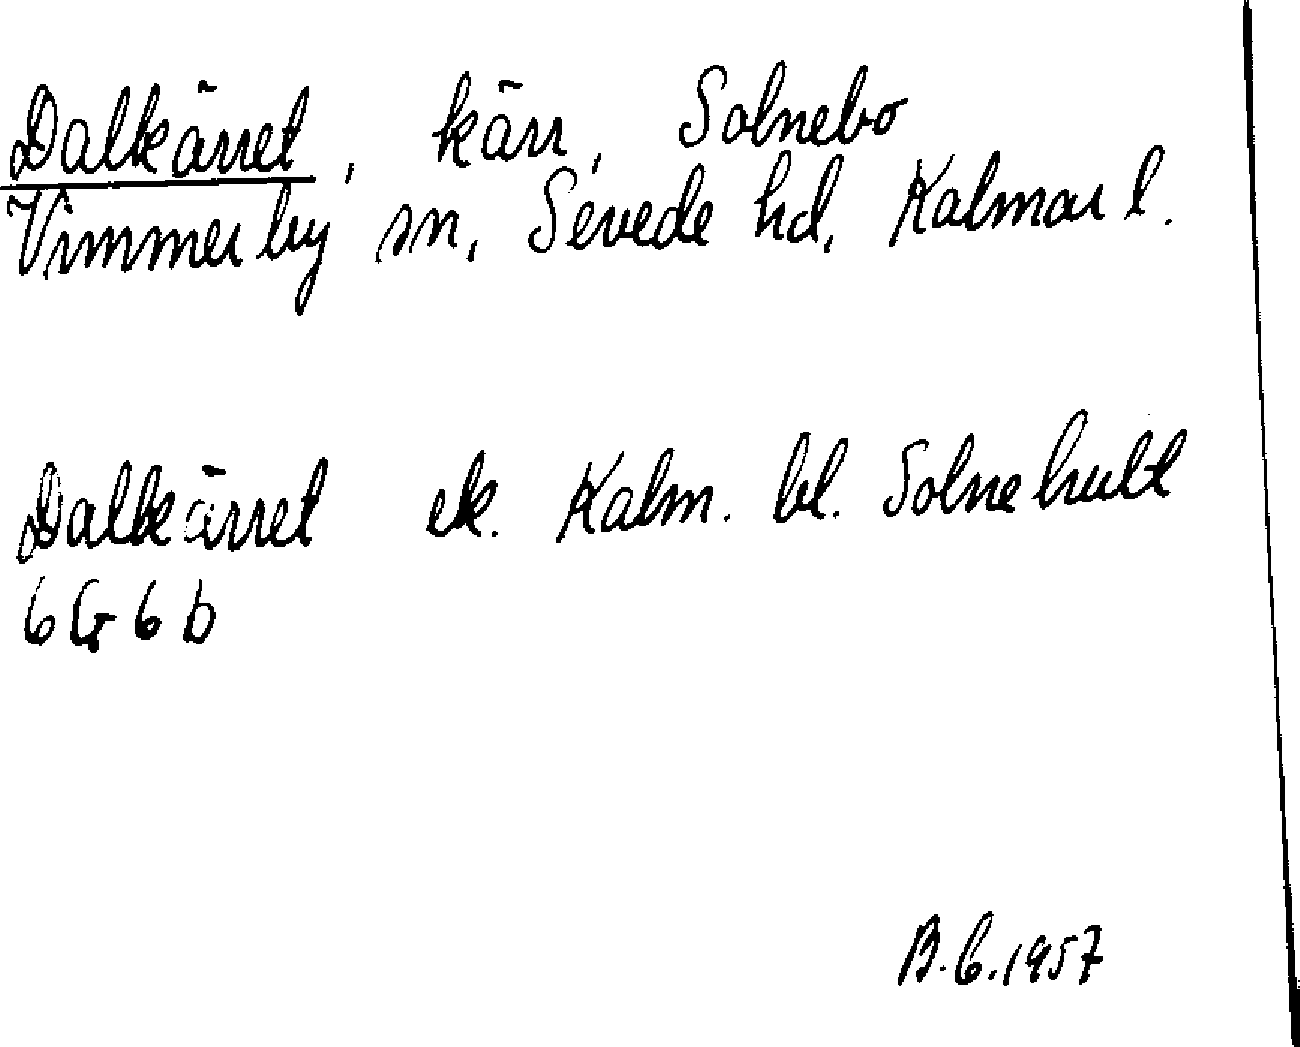 Dalkärret, kärr, Solnebo
Vimmerby sn, Sevede hd, Kalmar l.
Dalkärret ek. Kalm. bl. Solnehult
6G6b
B.C.1957